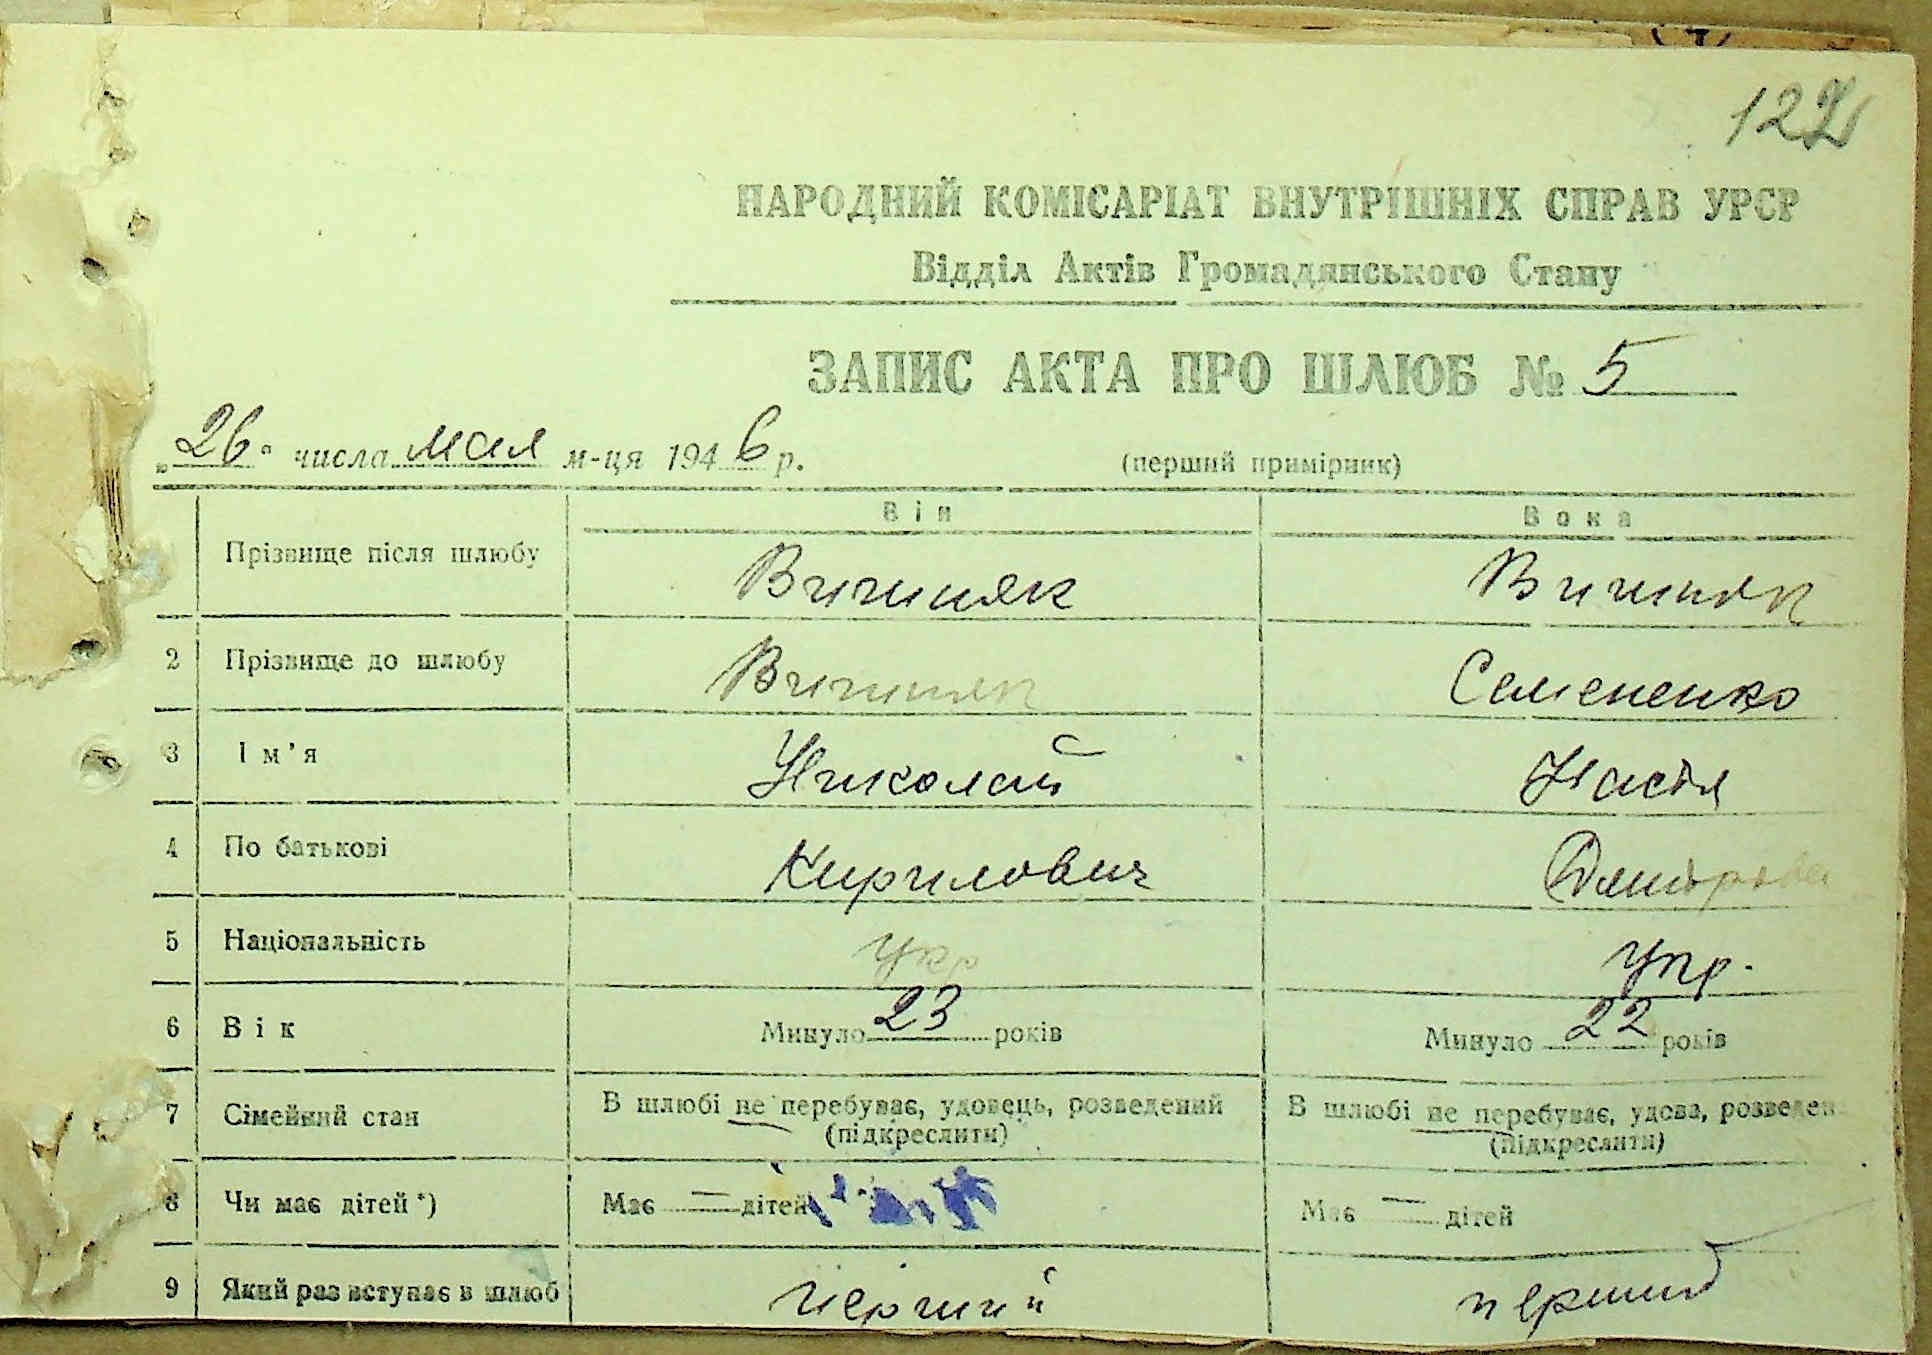 122
НАРОДНИЙ КОМІСАРІАТ ВНУТРІШНІХ СПРАВ УРСР
Відділ Актів Громадянського Стану
ЗАПИС АКТА ПРО ШЛЮБ № 5
„26“ числа мая м-ця 1946 р. (перший примірник)
Він Вона
Прізвище після шлюбу Вишняк Вишняк
2 Прізвище до шлюбу Вишняк Семененко
3 Ім'я Николай Настя
4 По батькові Кирилович Дмитровна
5 Національність укр укр.
6 Вік Минуло 23 років Минуло 22 років
7 Сімейний стан В шлюбі не перебуває, удовець, розведений (підкреслити) В шлюбі не перебуває, удова, розведен (підкреслити)
8 Чи має дітей*) Має — дітей Має — дітей
9 Який раз вступає в шлюб перший перший